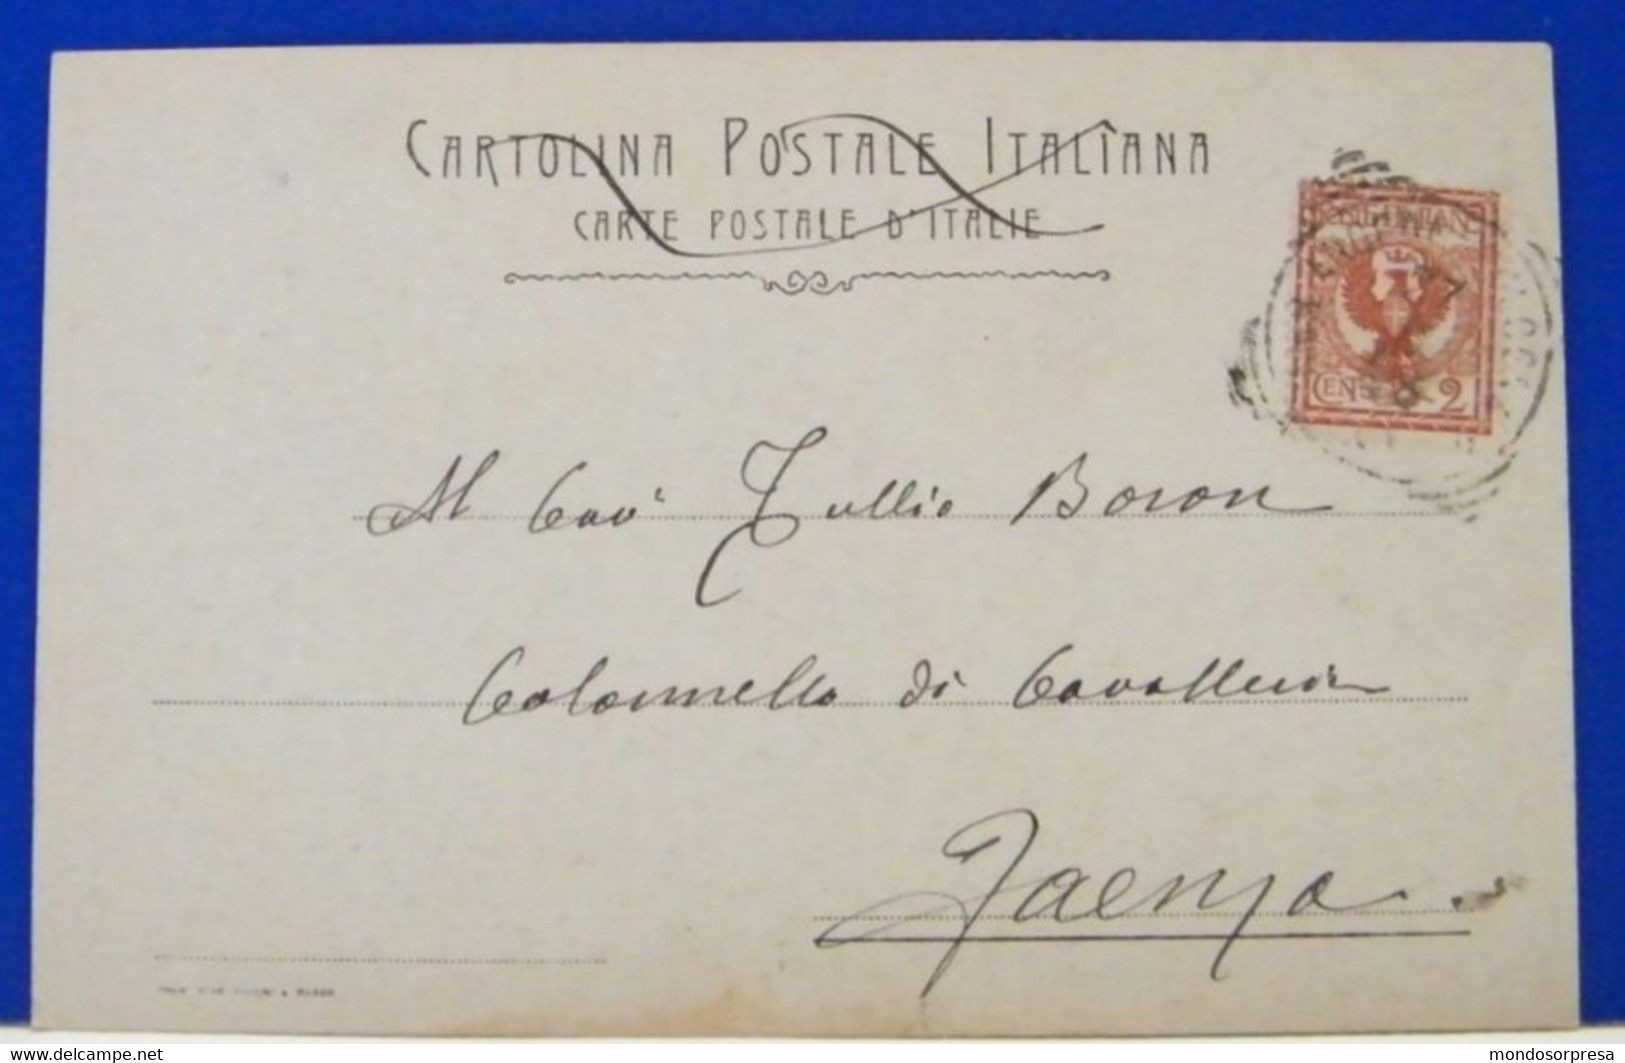 CARTOLINA POSTALE ITALIANA
CARTE POSTALE D'ITALIE
CEN 2
Al Cav Tullio Boron
Colonnello di Cavalleria
Faenza
www.delcampe.net
mondosorpresa